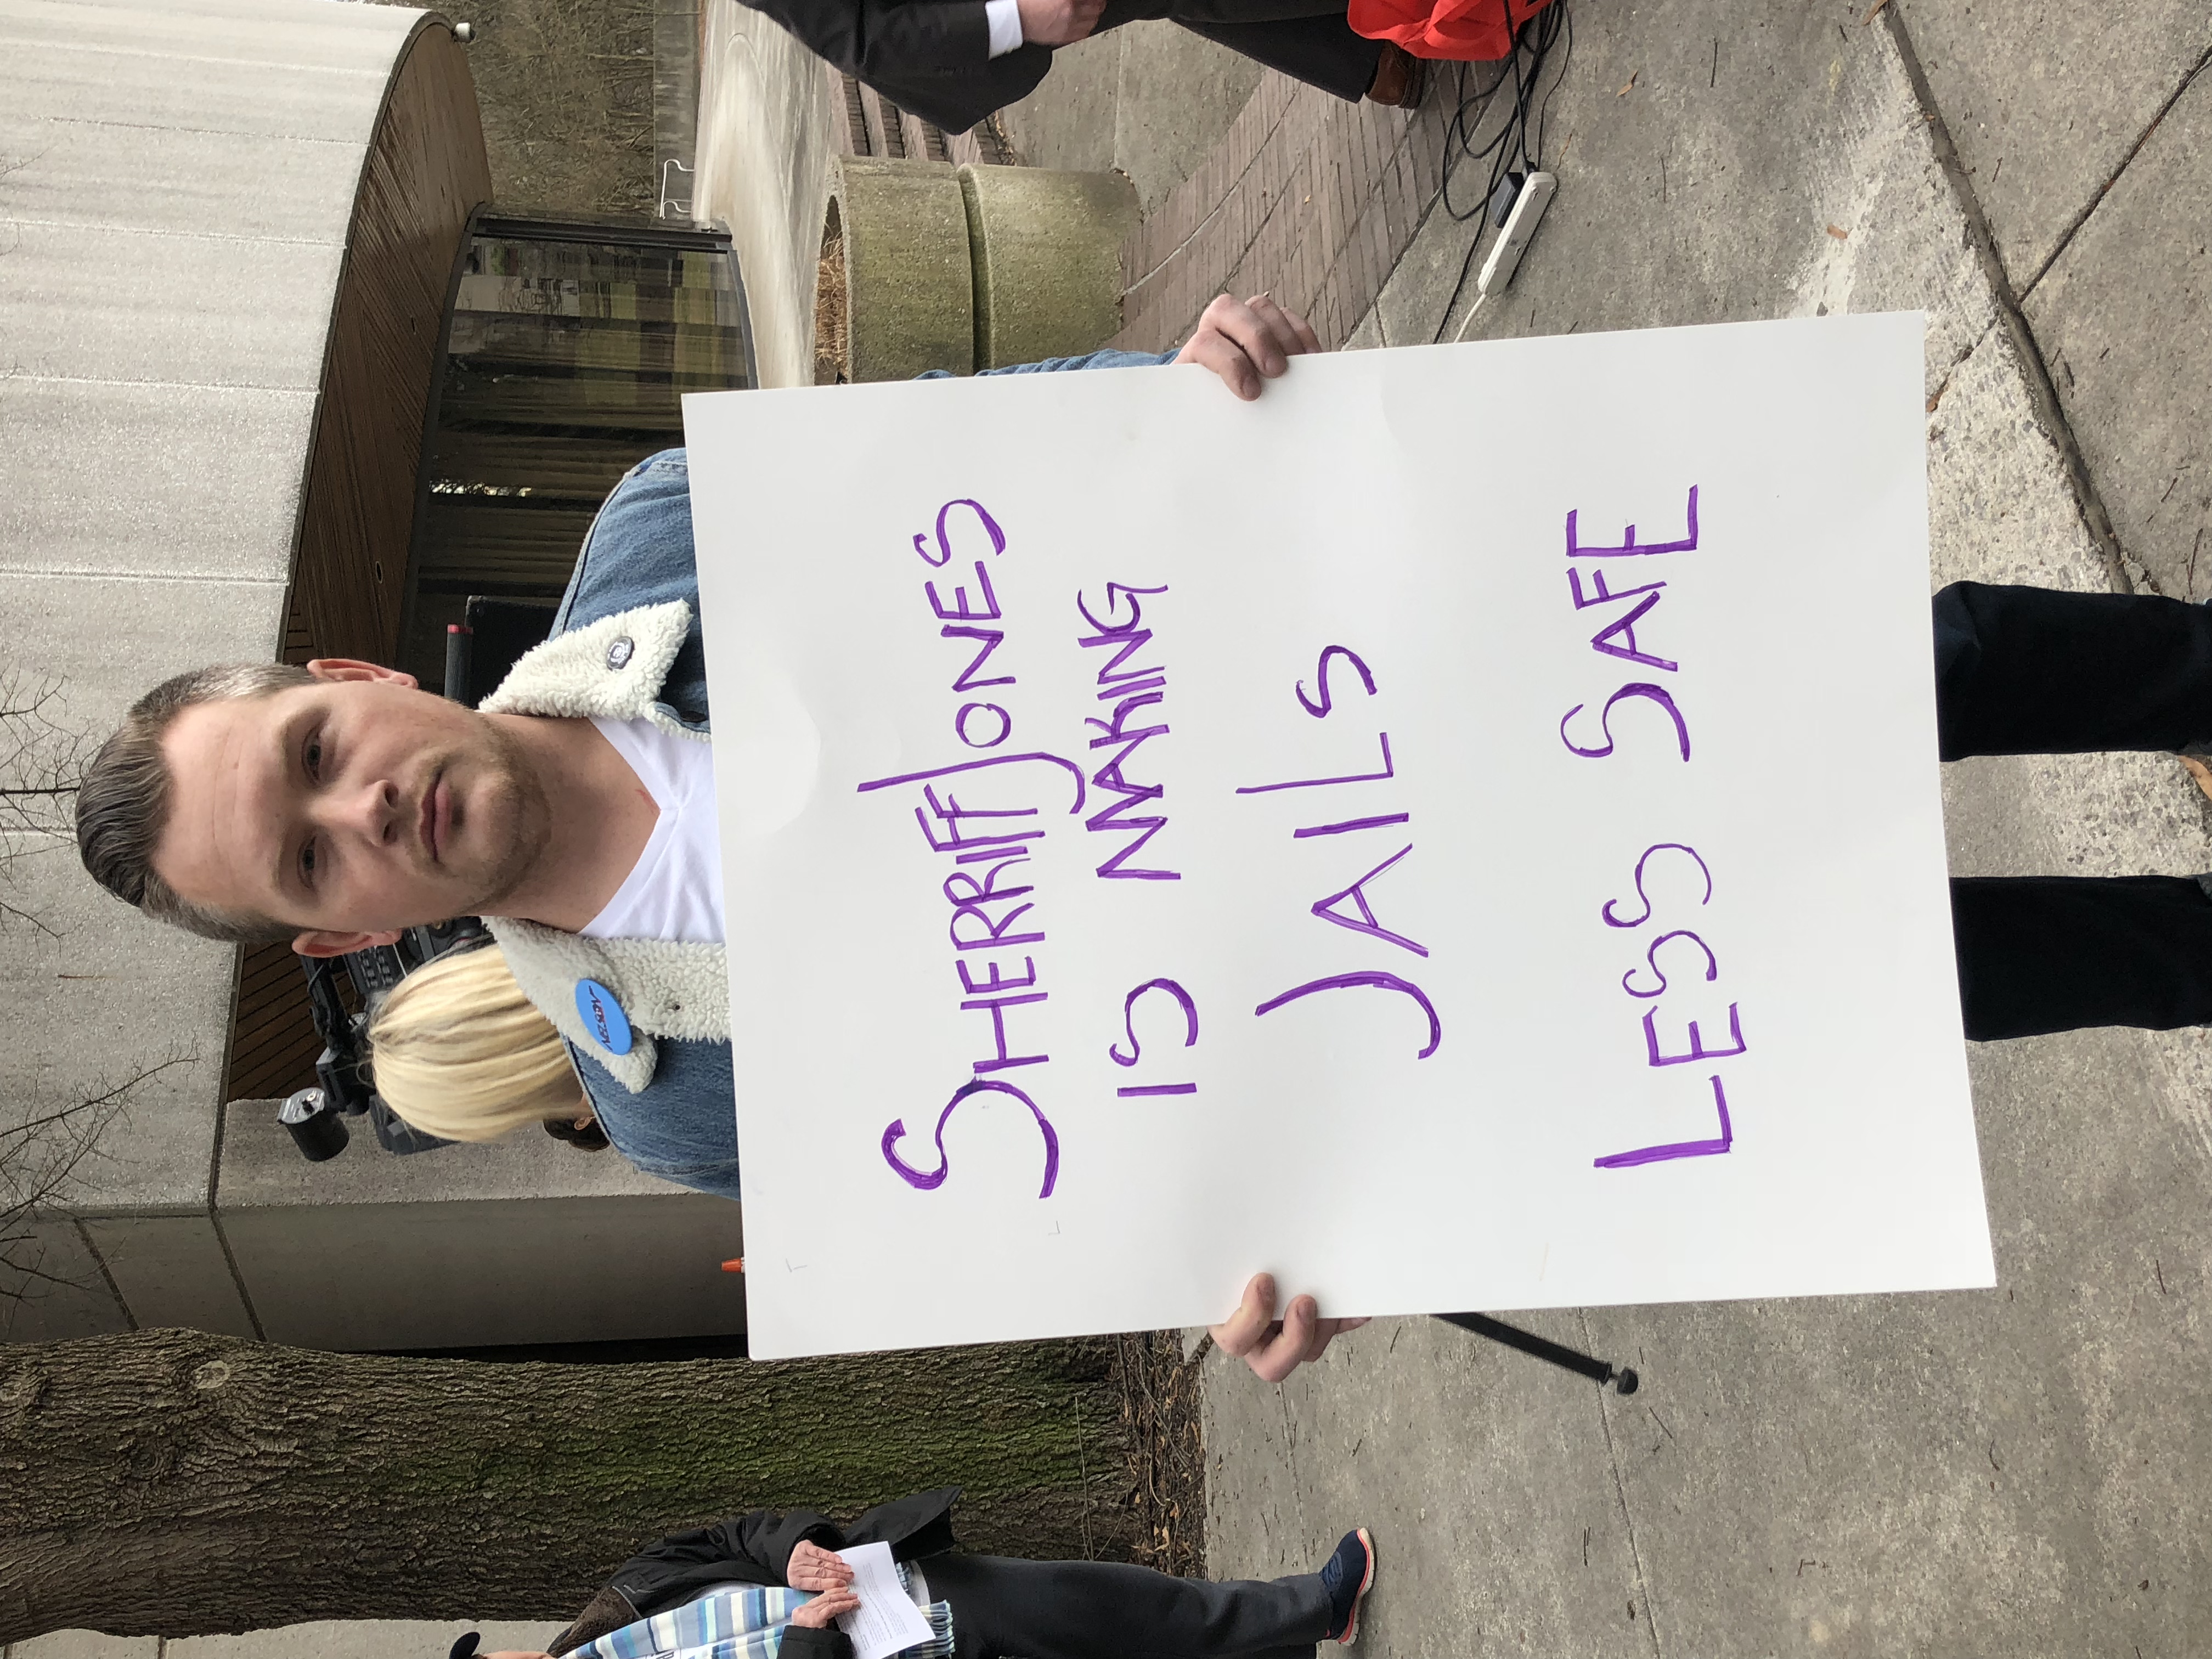 NELSON
SHERRIFF JONES
IS MAKING
JAILS
LESS SAFE